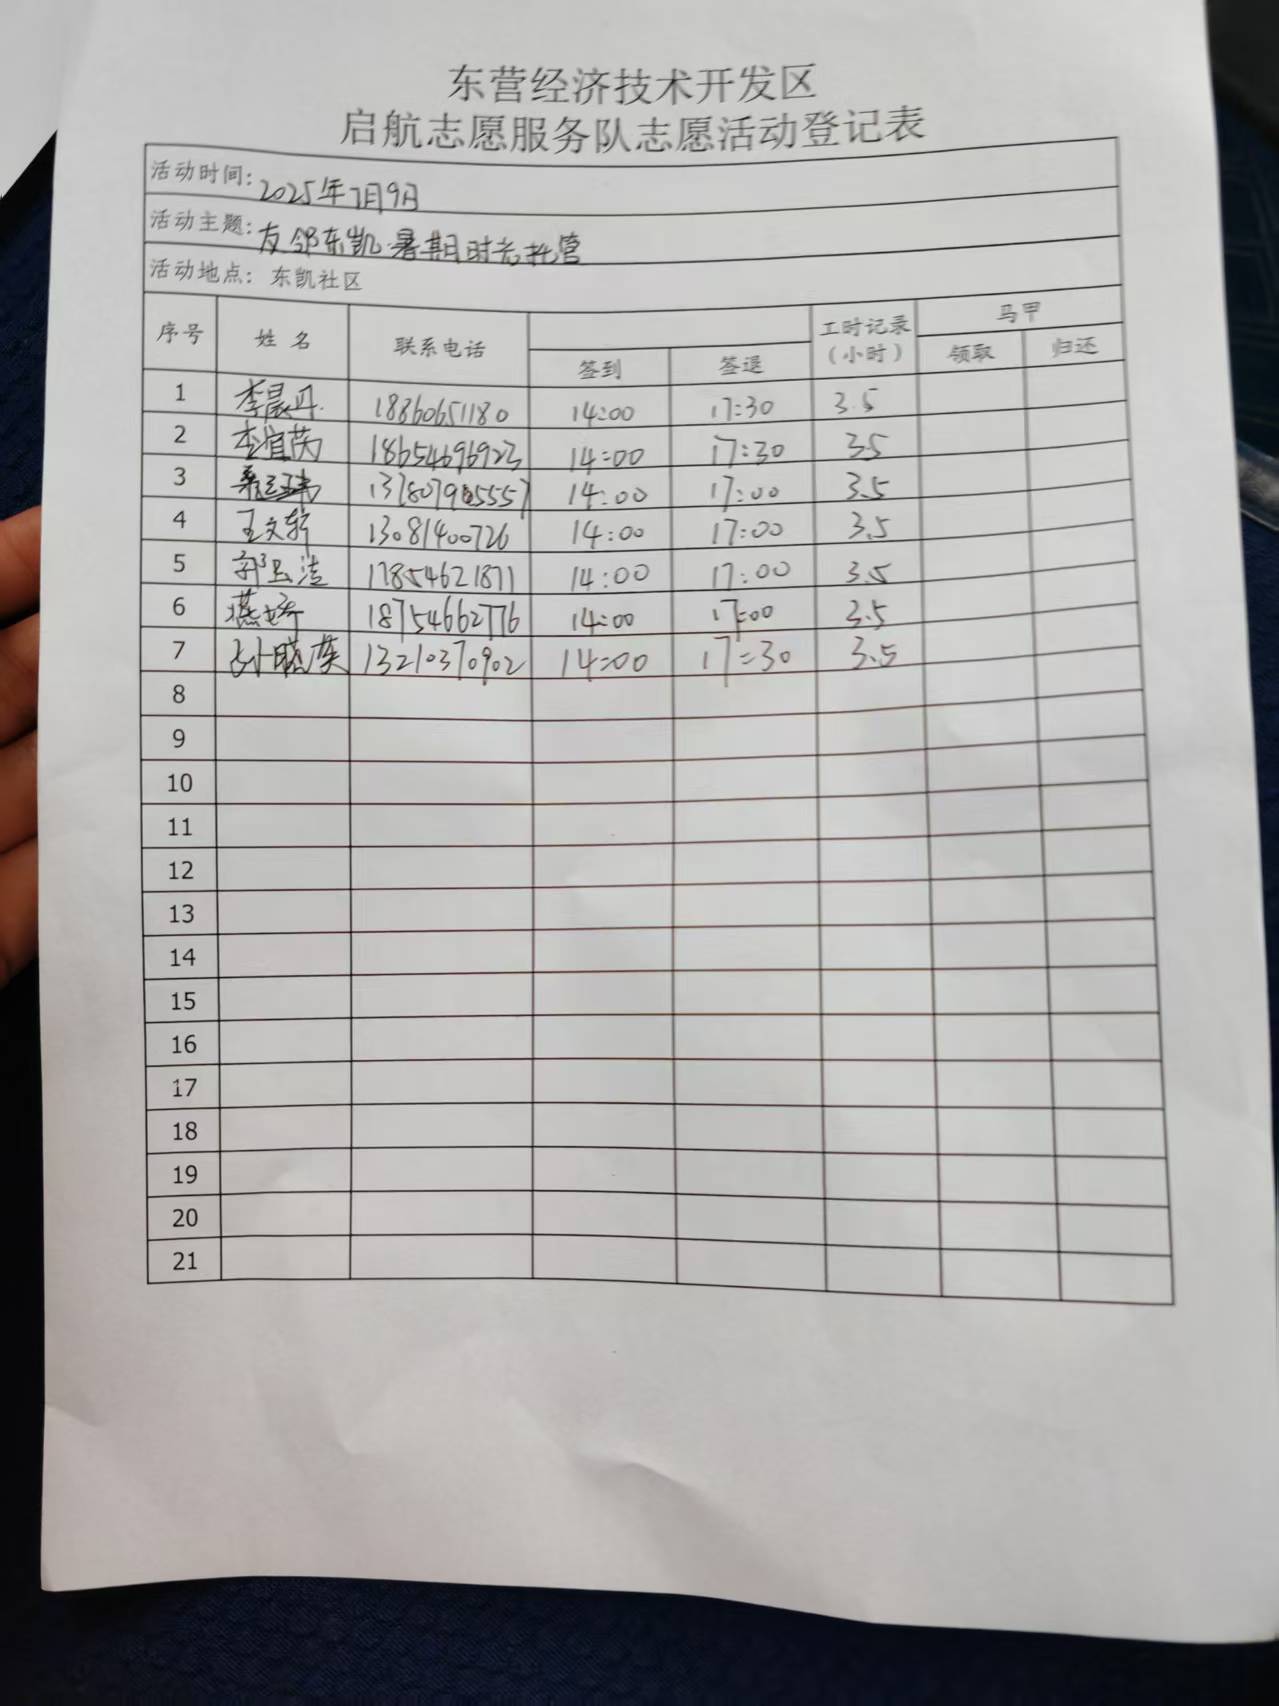 东营经济技术开发区
启航志愿服务队志愿活动登记表
活动时间: 2025年7月9日
活动主题: 友邻东凯·暑期时长托管
活动地点: 东凯社区
序号 姓名 联系电话 签到 签退 工时记录(小时) 马甲 领取 归还
1 李晨丹 18860651180 14:00 17:30 3.5
2 李宜芮 18654696923 14:00 17:30 3.5
3 14:00 17:00 3.5
4 王文轩 13081400726 14:00 17:00 3.5
5 郭玉洁 17854621871 14:00 17:00 3.5
6 燕婷 18754662776 14:00 17:00 3.5
7 孙晓英 13210370902 14:00 17:30 3.5
8
9
10
11
12
13
14
15
16
17
18
19
20
21